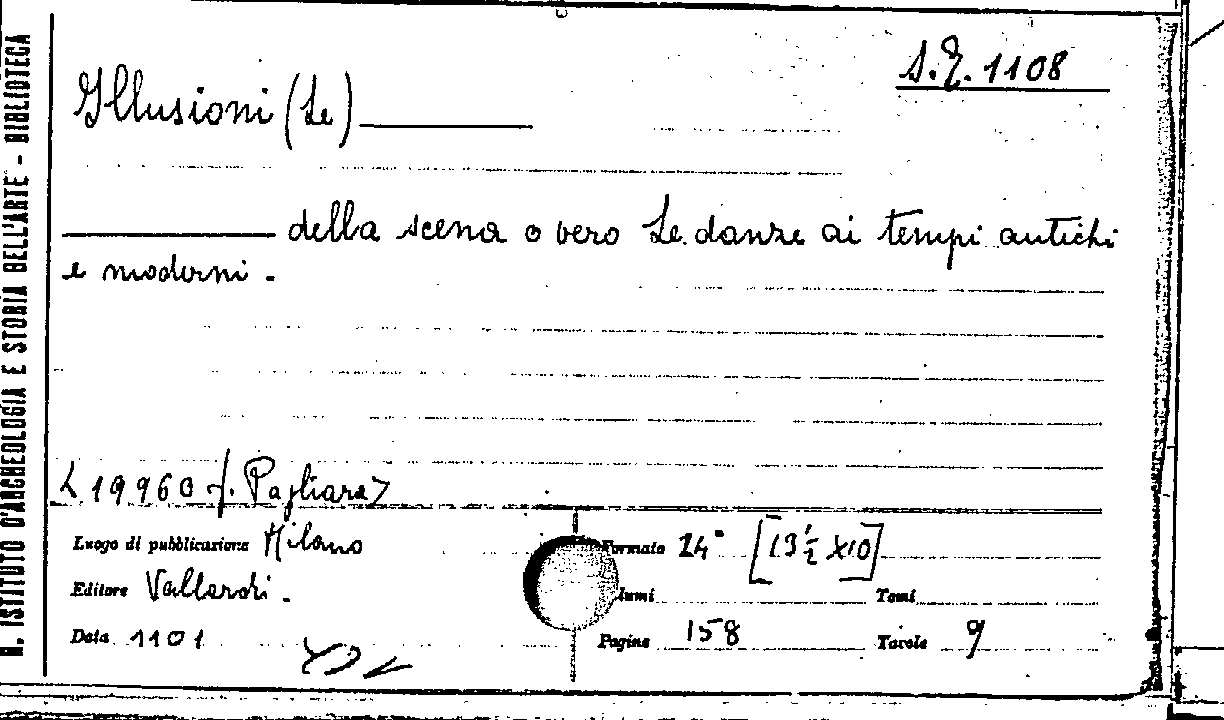 R. ISTITUTO D'ARCHEOLOGIA E STORIA DELL'ARTE - BIBLIOTECA
S.E. 1108
Illusioni (Le)
della scena o vero Le danze ai tempi antichi
e moderni.
<19960 f. Pagliara>
Luogo di pubblicazione Milano
Formato 24° [13½ X10]
Editore Vallardi.
lumi
Tomi
Data 1101
Pagine 158
Tavole 9